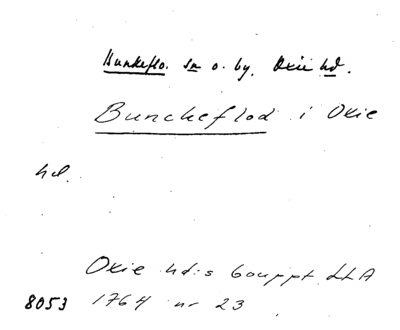 Bunkeflo sn o. by. Oxie hd.
Bunckeflod i Oxie
hd.
Oxie hd:s bouppt. LLA
8053 1764 nr 23